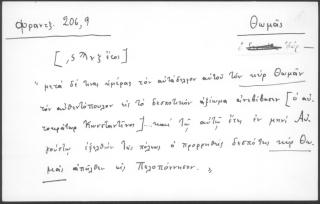 Φραντζ. 206, 9
Θωμᾶς
[ , ς Ϡ ν ξ ἔτος ]
"μετὰ δέ τινας ἡμέρας τὸν αὐτάδελφον αὐτοῦ τὸν κὺρ Θωμᾶν
τὸν αὐθεντόπουλον εἰς τὸ δεσποτικὸν ἀξίωμα ἀνεβίβασεν [ὁ αὐ-
τοκράτωρ Κωνσταντῖνος] ... καὶ τῷ αὐτῷ ἔτει ἐν μηνὶ Αὐ-
γούστῳ ἐξελθὼν τῆς πόλεως ὁ προρρηθεὶς δεσπότης κὺρ Θω-
μᾶς ἀπῆλθεν εἰς Πελοπόννησον."